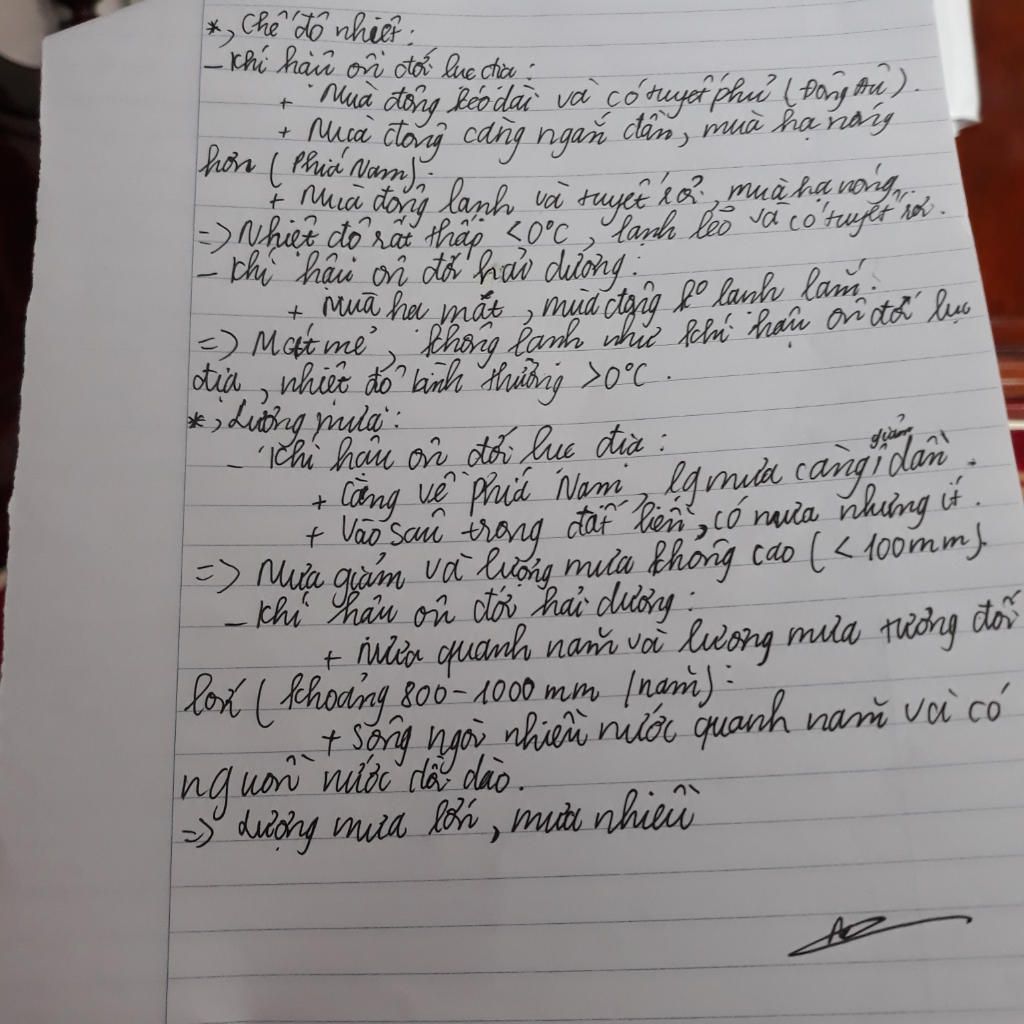 *, Chế độ nhiệt:
- Khí hậu ôn đới lục địa:
+ Mùa đông kéo dài và có tuyết phủ (Đông Âu).
+ Mùa đông càng ngắn dần, mùa hạ nóng
hơn (Phía Nam).
+ Mùa đông lạnh và tuyết rơi, mùa hạ nóng.
=> Nhiệt độ rất thấp <0°C, lạnh lẽo và có tuyết rơi.
- Khí hậu ôn đới hải dương:
+ Mùa hạ mát, mùa đông ko lạnh lắm.
=> Mát mẻ, không lạnh như khí hậu ôn đới lục
địa, nhiệt độ bình thường >0°C.
*, Lượng mưa:
- Khí hậu ôn đới lục địa:
+ Càng về phía Nam, lg mưa càng giảm dần.
+ Vào sâu trong đất liền, có mưa nhưng ít.
=> Mưa giảm và lượng mưa không cao (<100mm).
- Khí hậu ôn đới hải dương:
+ Mưa quanh năm và lượng mưa tương đối
lớn (khoảng 800-1000 mm/năm).
+ Sông ngòi nhiều nước quanh năm và có
nguồn nước dồi dào.
=> Lượng mưa lớn, mưa nhiều